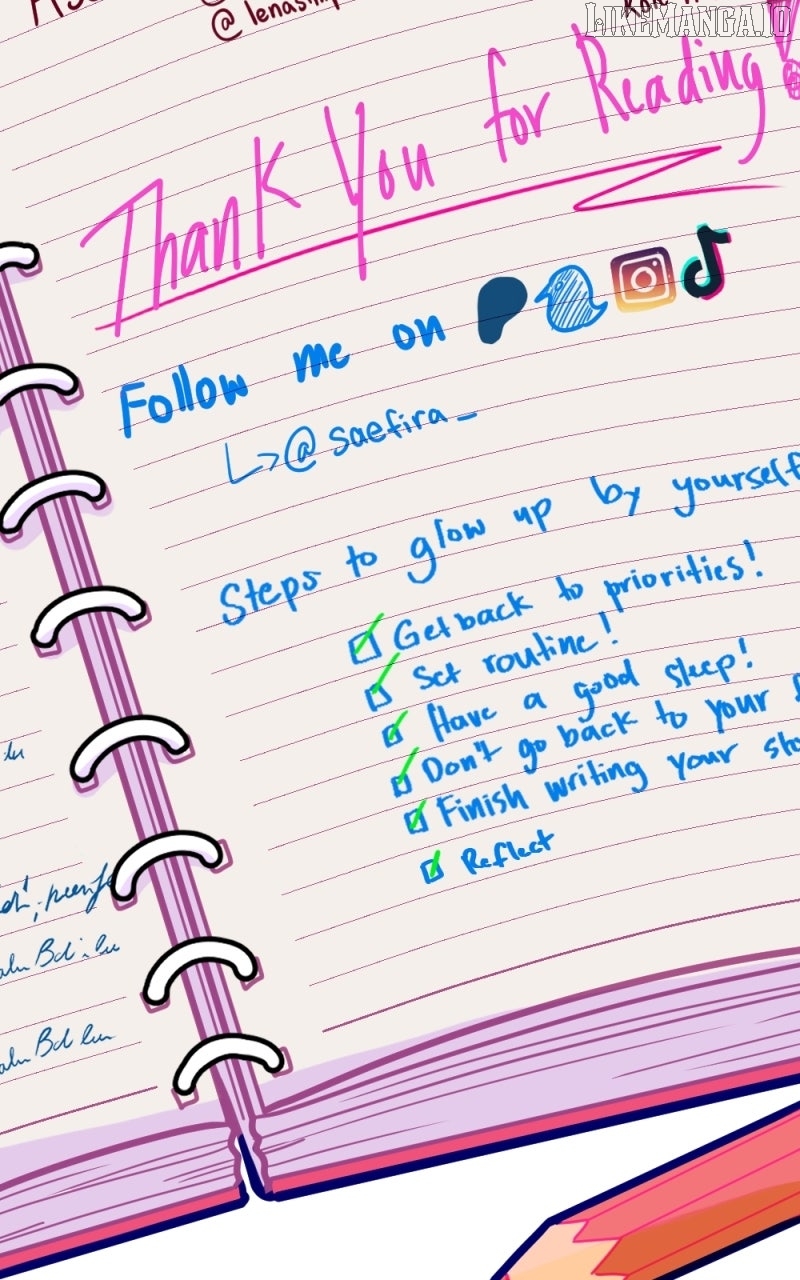 LIKEMANGA.IO
Thank You for Reading
Follow me on
@saefira_
Steps to glow up by yourself
Get back to priorities!
Set routine!
Have a good sleep!
Don't go back to your
Finish writing your
Reflect